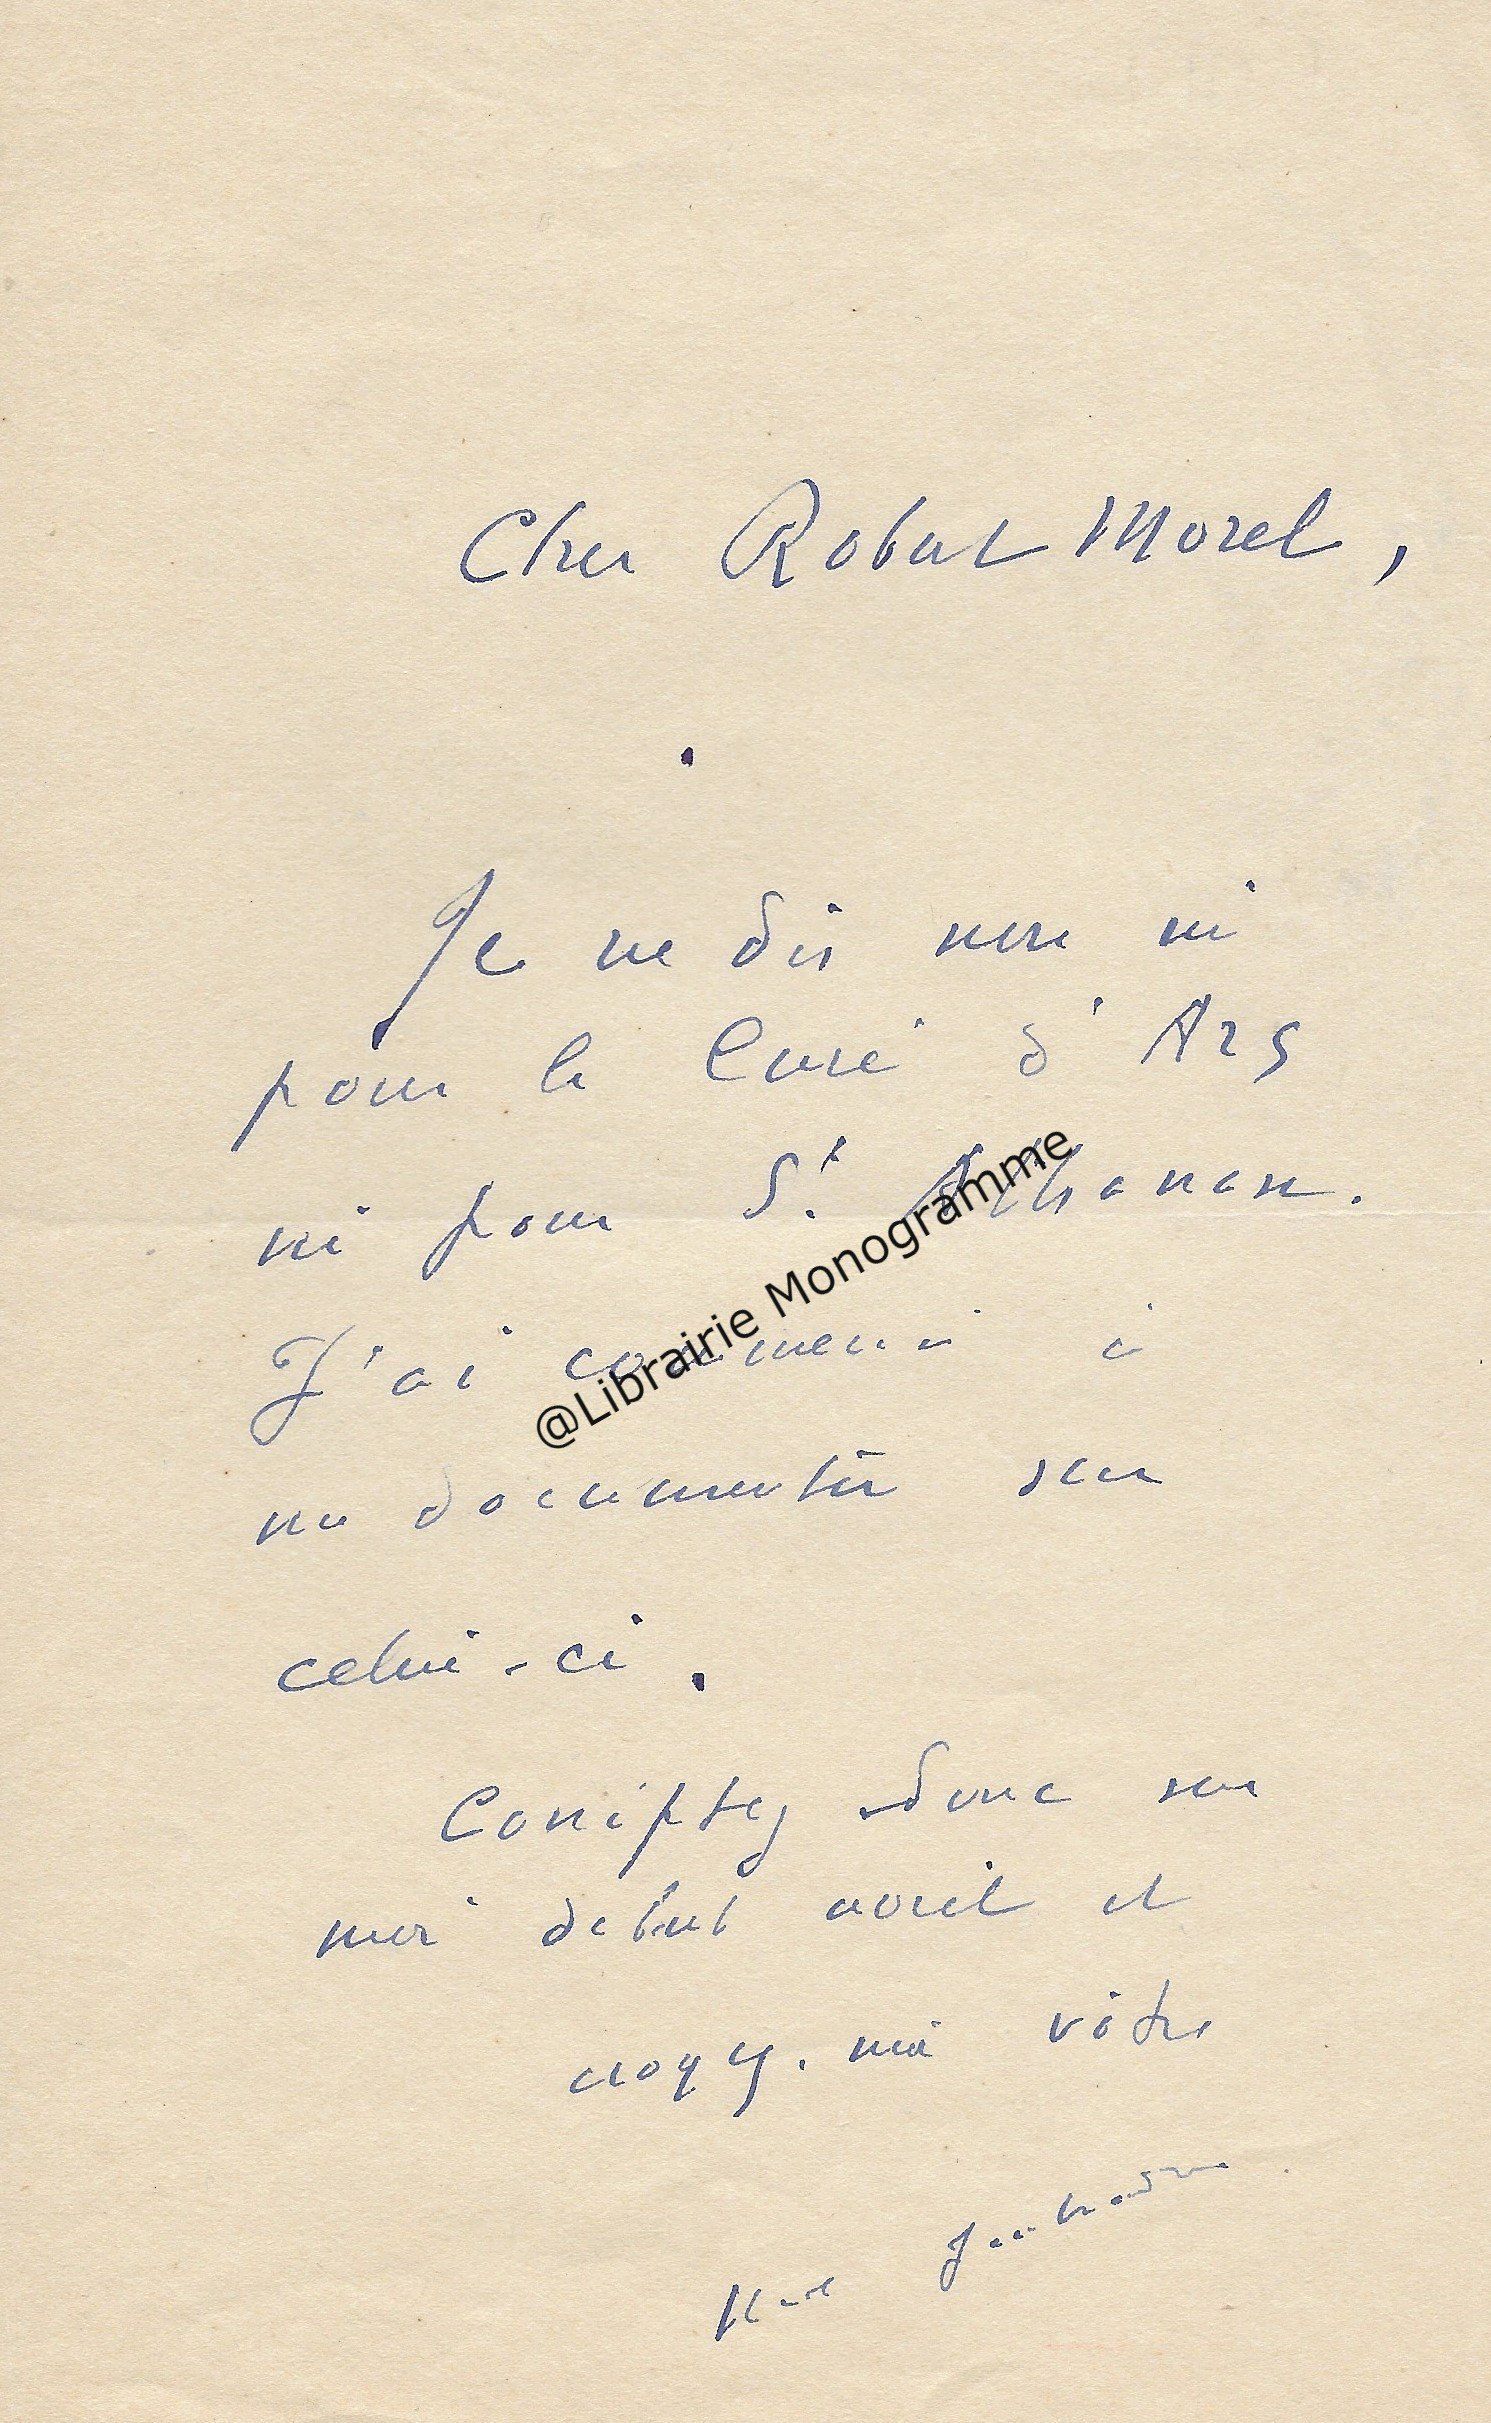 Cher Robert Morel,
Je ne dis non ni
pour le Curé d'Ars
ni pour St. Athanase.
J'ai commencé à
me documenter sur
celui-ci.
Comptez donc sur
moi début avril et
croyez-moi vôtre
@Librairie Monogramme